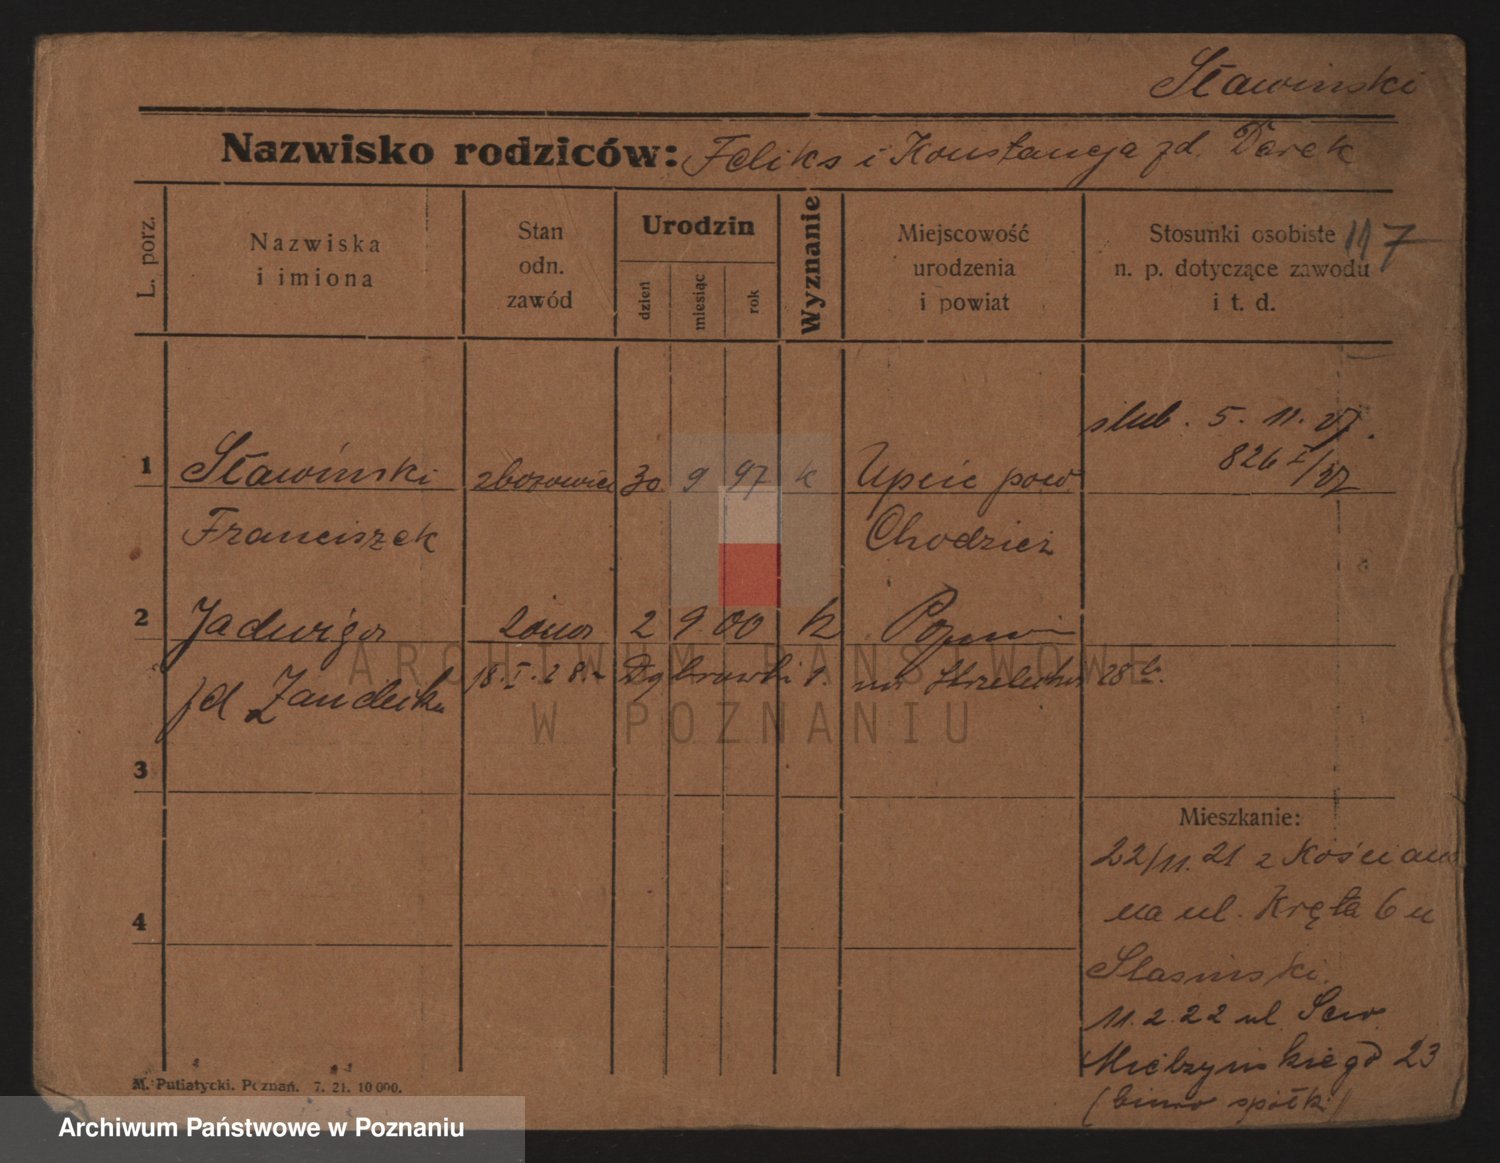 Sławinski
Nazwisko rodziców: Feliks i Konstancja zd. Darek
L. porz.
Nazwiska
i imiona
Stan
odn.
zawód
Urodzin
dzień
miesiąc
rok
Wyznanie
Miejscowość
urodzenia
i powiat
Stosunki osobiste
n. p. dotyczące zawodu
i t. d.
117
slub. 5. 11. 27.
826 I/27
1 Sławiński 30 9 97 k Upcie pow
Franciszek Chodzież
2 Jadwiga żona 2 9 00 k
zd 18. I. 28. 28
ARCHIWUM PAŃSTWOWE
W POZNANIU
3
Mieszkanie:
22/11. 21 z Kościana
na ul. Kręta 6 u
4
Stasinski
11. 2. 22 ul. Sew.
Mielżyńskiego 23
(biuro spółki)
M. Putiatycki. Poznań. 7. 21. 10 000.
Archiwum Państwowe w Poznaniu